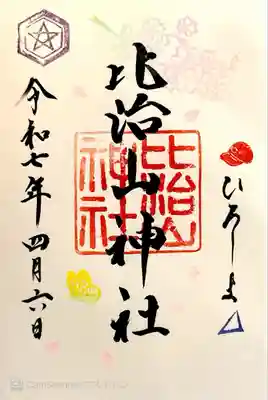 ひろしま
比治山神社
比治山
神社
令和七年 四月六日